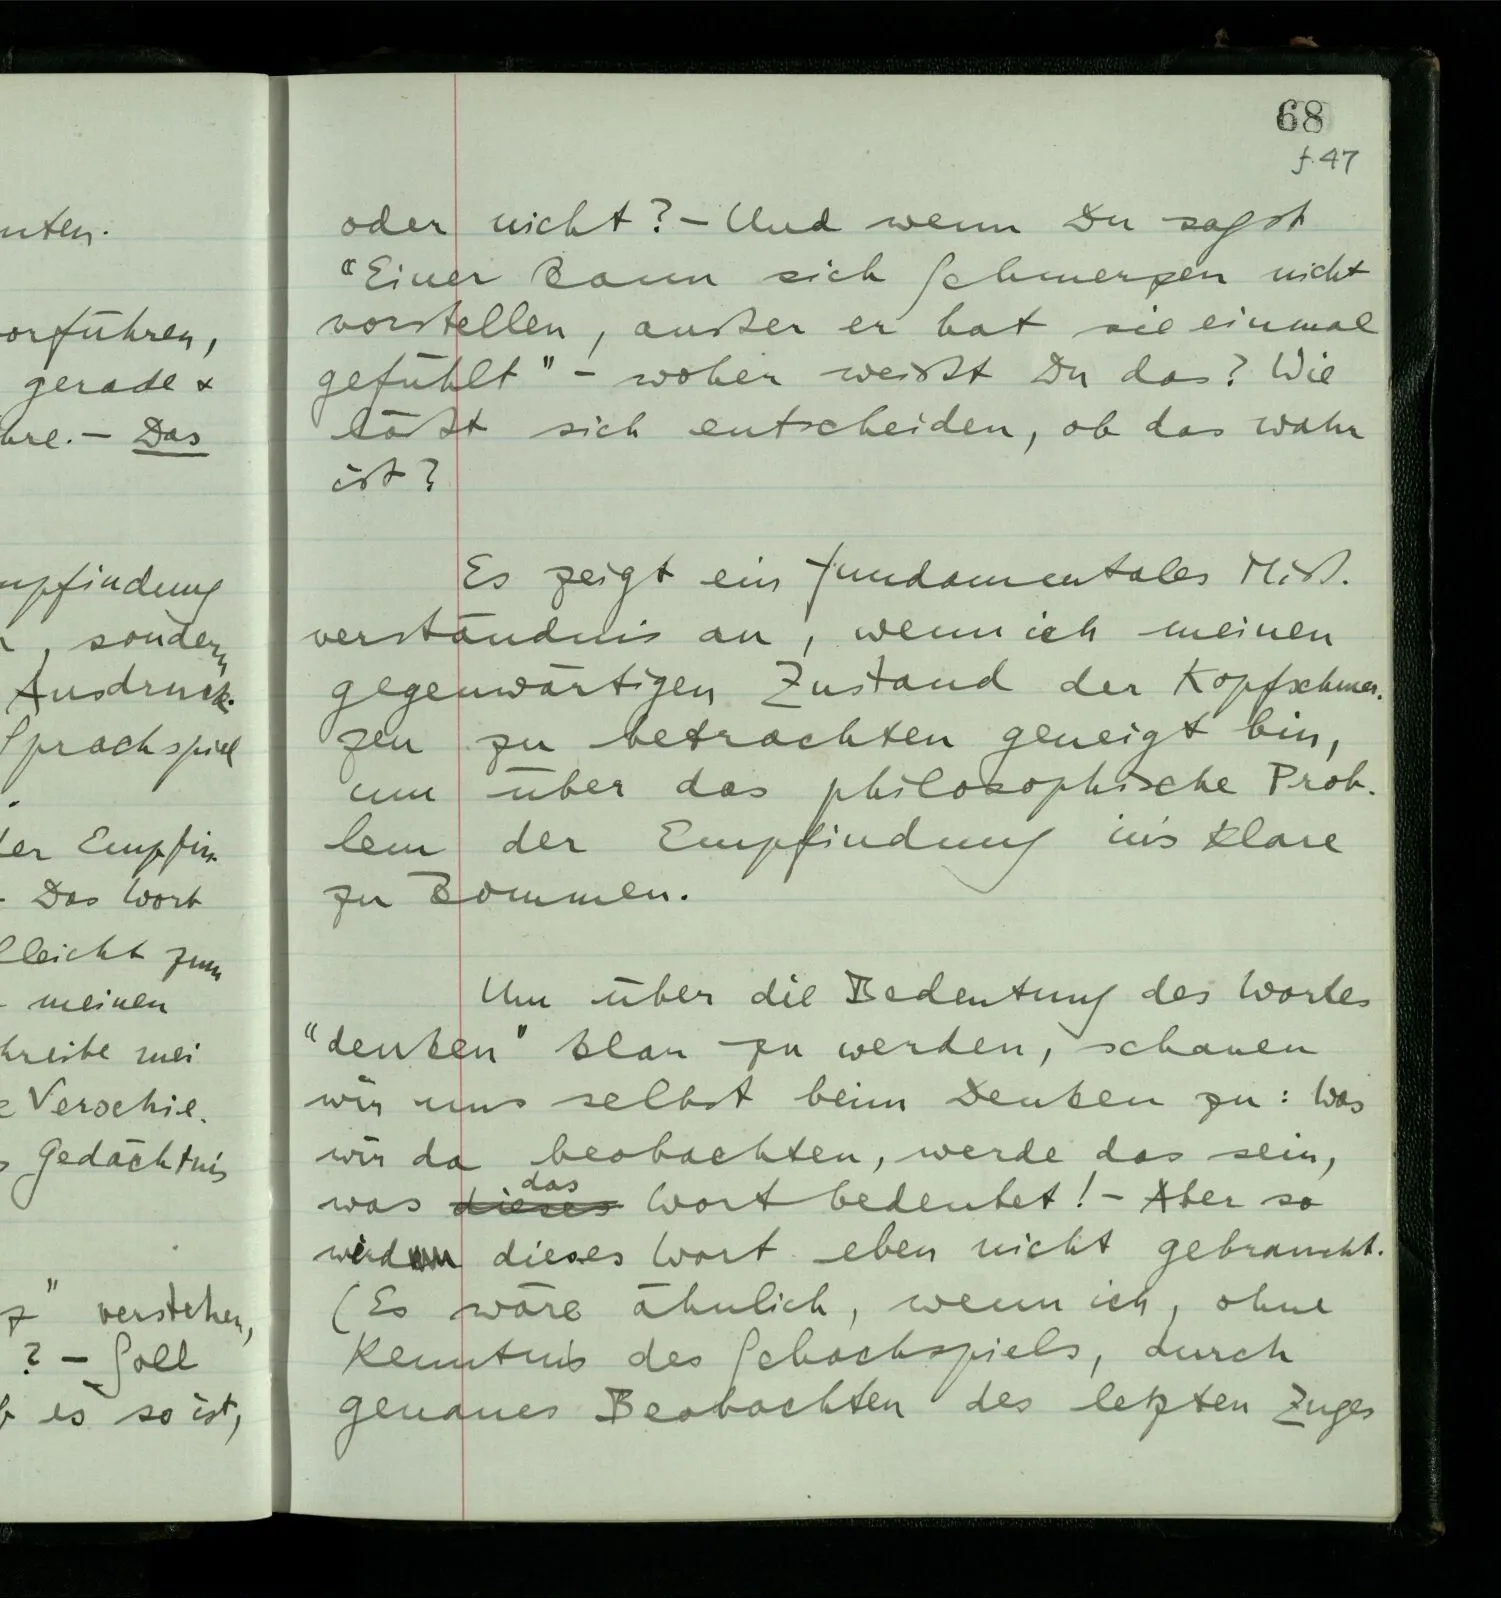 nten.
vorführen,
gerade &
hre. – Das
mpfindung
, sondern
Ausdruck.
Sprachspiel
der Empfin
. Das Wort
lleicht zum
meinen
hreibe mei
e Verschie.
s Gedächtnis
z" verstehen,
? – Soll
b es so ist,
68
f. 47
oder nicht? – Und wenn Du sagst
"Einer kann sich Schmerzen nicht
vorstellen, außer er hat sie einmal
gefühlt" – woher weißt Du das? Wie
läßt sich entscheiden, ob das wahr
ist?
Es zeigt ein fundamentales Miß.
verständnis an, wenn ich meinen
gegenwärtigen Zustand der Kopfschmer.
zen zu betrachten geneigt bin,
um über das philosophische Prob.
lem der Empfindung in's klare
zu kommen.
Um über die Bedeutung des Wortes
"denken" klar zu werden, schauen
wir uns selbst beim Denken zu: Was
wir da beobachten, werde das sein,
was dieses das Wort bedeutet! – Aber so
wird dieses Wort eben nicht gebraucht.
(Es wäre ähnlich, wenn ich, ohne
Kenntnis des Schachspiels, durch
genaues Beobachten des letzten Zuges